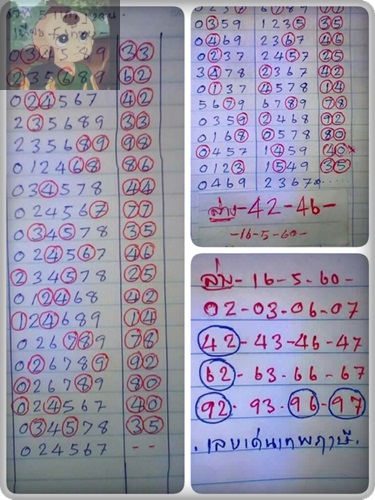 0345789 33
2356789 62
024567 42
235689 33
235689 98
012468 86
034578 44
024567 77
034578 35
024567 46
234578 25
012468 42
124689 14
026789 78
026789 92
026789 80
024567 40
034578 35
024567 --
0359 1235 35
0469 2367 46
0237 2457 25
3478 2367 42
0137 4578 14
5679 6789 78
0359 2468 92
0168 0578 80
0457 1459 40
0123 1549 35
0469 2367
ล่าง-42-46-
-16-5-60-
ล่าง-16-5-60-
02-03-06-07
42-43-46-47
62-63-66-67
92-93-96-97